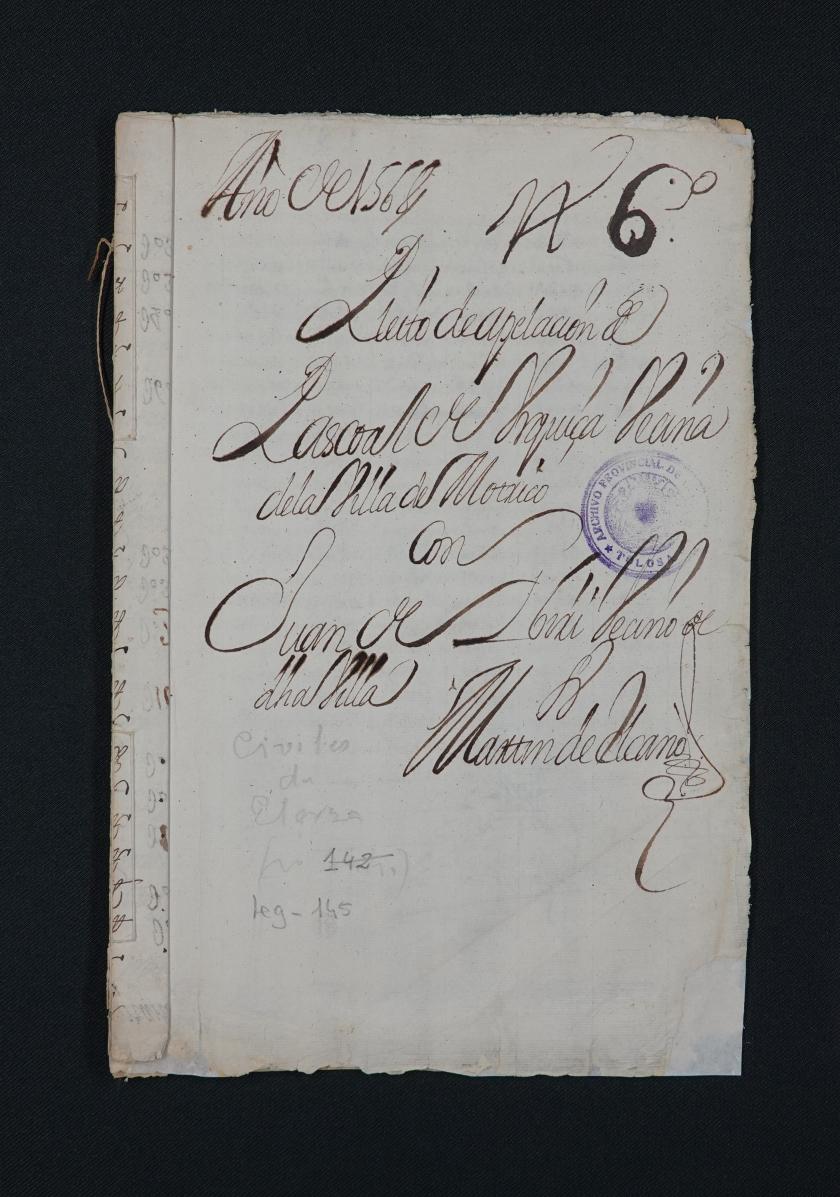 Año de 1564
Nº 6º
Pleito de apelacion de
Pascoal de Vrquiça Vecino
dela Villa de Motrico
Con
Juan de Vecino de
dha Villa
Martin de Elcano
ARCHIVO PROVINCIAL DE
★ TOLOSA
Civiles
de
Elorza
142
leg - 145